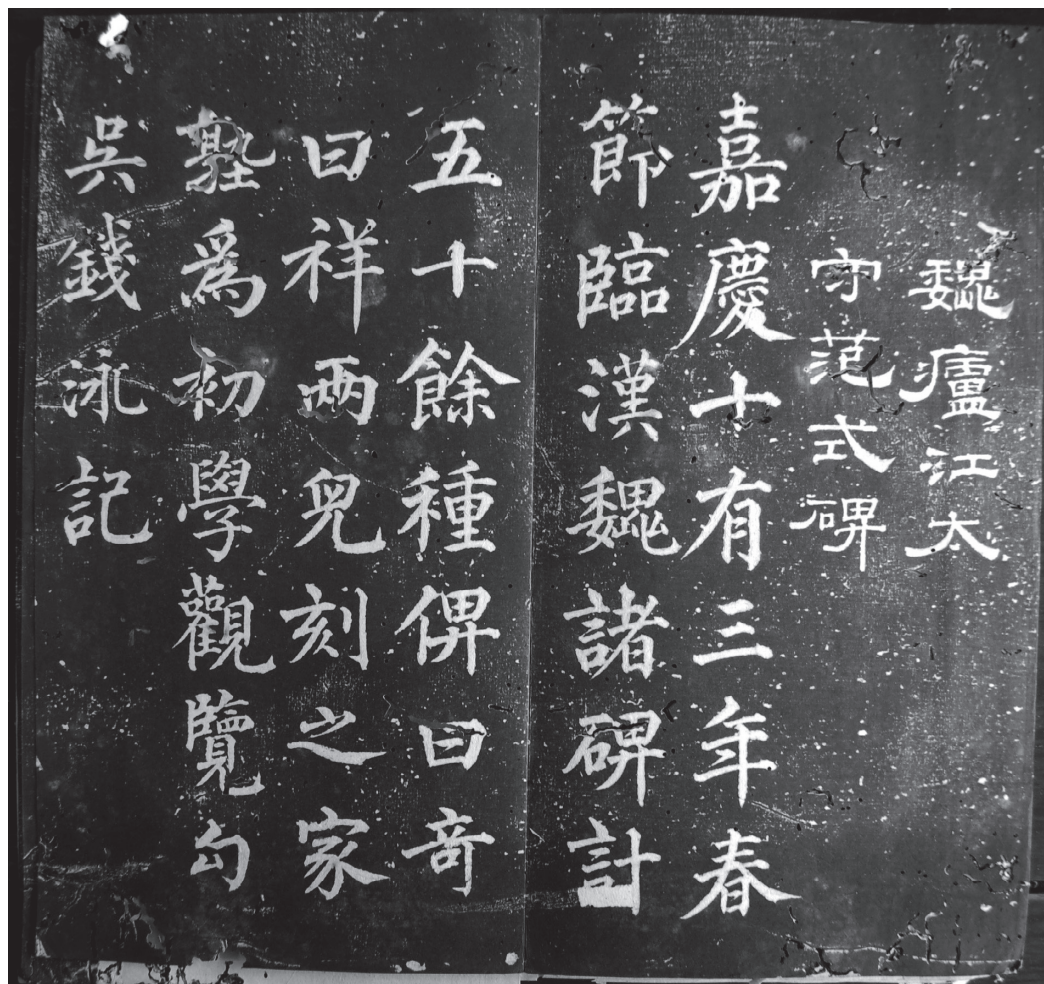 魏廬江太
守范式碑
嘉慶十有三年春
節臨漢魏諸碑計
五十餘種俾曰奇
曰祥兩兒刻之家
塾爲初學觀覽勾
吳錢泳記